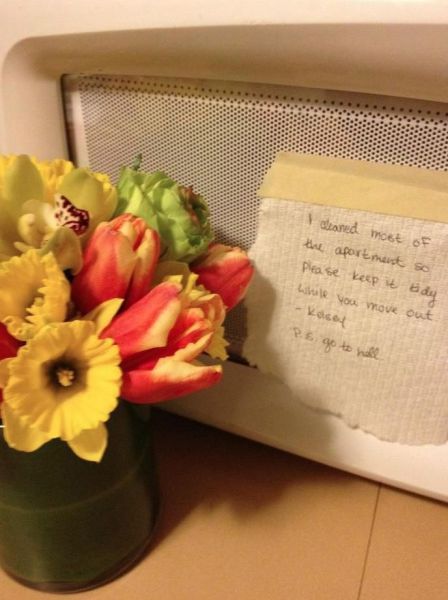 I cleaned most of
the apartment so
please keep it tidy
while you move out
- Kelsey
P.S. go to hell